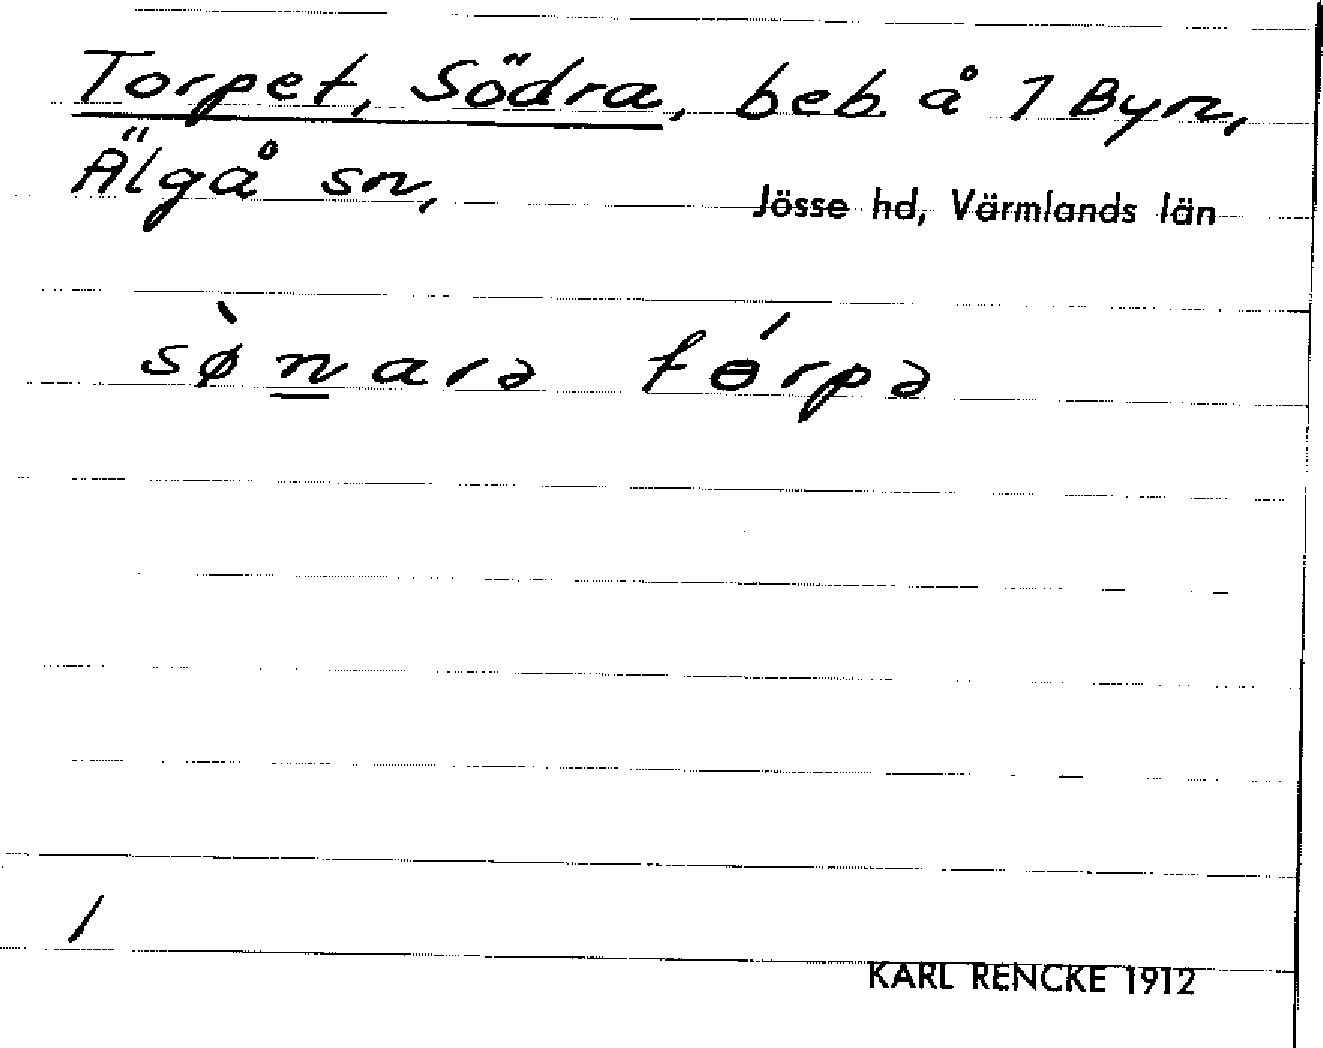 Torpet, Södra, beb. å 1 Byn,
Älgå sn, Jösse hd, Värmlands län
sø̀n̲arə tɵ́rpə
/
KARL RENCKE 1912